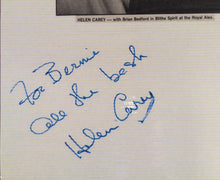 HELEN CAREY — with Brian Bedford in Blithe Spirit at the Royal Alex.
For Bernie
All the best
Helen Carey